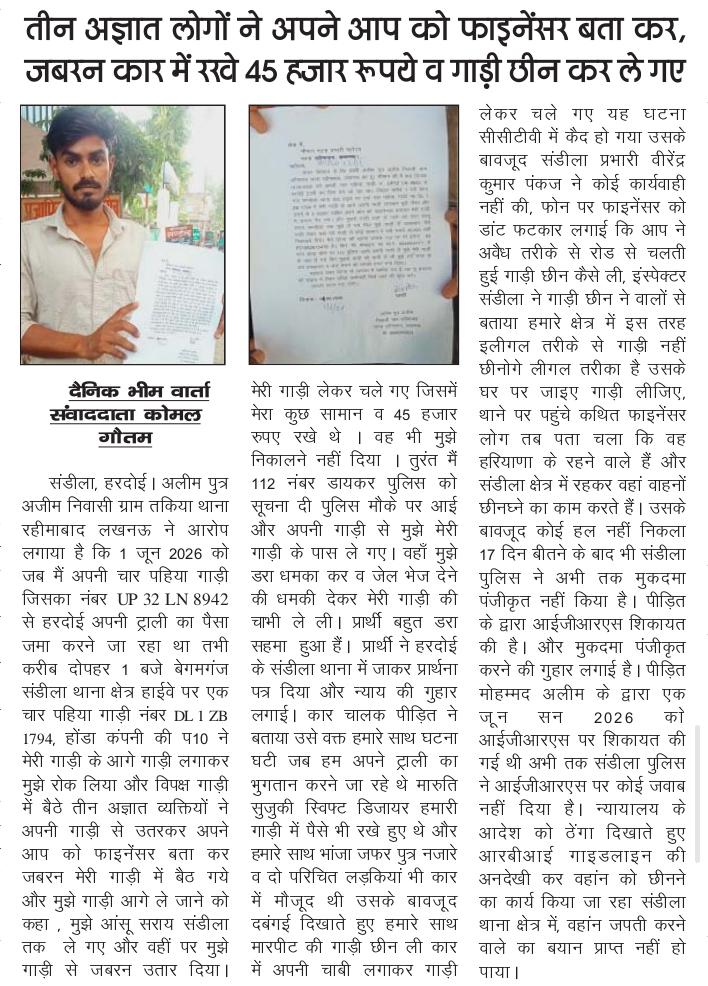 तीन अज्ञात लोगों ने अपने आप को फाइनेंसर बता कर,
जबरन कार में रखे 45 हजार रूपये व गाड़ी छीन कर ले गए
दैनिक भीम वार्ता
संवाददाता कोमल
गौतम
संडीला, हरदोई। अलीम पुत्र
अजीम निवासी ग्राम तकिया थाना
रहीमाबाद लखनऊ ने आरोप
लगाया है कि 1 जून 2026 को
जब मैं अपनी चार पहिया गाड़ी
जिसका नंबर UP 32 LN 8942
से हरदोई अपनी ट्राली का पैसा
जमा करने जा रहा था तभी
करीब दोपहर 1 बजे बेगमगंज
संडीला थाना क्षेत्र हाईवे पर एक
चार पहिया गाड़ी नंबर DL 1 ZB
1794, होंडा कंपनी की प10 ने
मेरी गाड़ी के आगे गाड़ी लगाकर
मुझे रोक लिया और विपक्ष गाड़ी
में बैठे तीन अज्ञात व्यक्तियों ने
अपनी गाड़ी से उतरकर अपने
आप को फाइनेंसर बता कर
जबरन मेरी गाड़ी में बैठ गये
और मुझे गाड़ी आगे ले जाने को
कहा , मुझे आंसू सराय संडीला
तक ले गए और वहीं पर मुझे
गाड़ी से जबरन उतार दिया।
मेरी गाड़ी लेकर चले गए जिसमें
मेरा कुछ सामान व 45 हजार
रुपए रखे थे । वह भी मुझे
निकालने नहीं दिया । तुरंत मैं
112 नंबर डायकर पुलिस को
सूचना दी पुलिस मौके पर आई
और अपनी गाड़ी से मुझे मेरी
गाड़ी के पास ले गए। वहाँ मुझे
डरा धमका कर व जेल भेज देने
की धमकी देकर मेरी गाड़ी की
चाभी ले ली। प्रार्थी बहुत डरा
सहमा हुआ हैं। प्रार्थी ने हरदोई
के संडीला थाना में जाकर प्रार्थना
पत्र दिया और न्याय की गुहार
लगाई। कार चालक पीड़ित ने
बताया उसे वक्त हमारे साथ घटना
घटी जब हम अपने ट्राली का
भुगतान करने जा रहे थे मारुति
सुजुकी स्विफ्ट डिजायर हमारी
गाड़ी में पैसे भी रखे हुए थे और
हमारे साथ भांजा जफर पुत्र नजारे
व दो परिचित लड़कियां भी कार
में मौजूद थी उसके बावजूद
दबंगई दिखाते हुए हमारे साथ
मारपीट की गाड़ी छीन ली कार
में अपनी चाबी लगाकर गाड़ी
लेकर चले गए यह घटना
सीसीटीवी में कैद हो गया उसके
बावजूद संडीला प्रभारी वीरेंद्र
कुमार पंकज ने कोई कार्यवाही
नहीं की, फोन पर फाइनेंसर को
डांट फटकार लगाई कि आप ने
अवैध तरीके से रोड से चलती
हुई गाड़ी छीन कैसे ली, इंस्पेक्टर
संडीला ने गाड़ी छीन ने वालों से
बताया हमारे क्षेत्र में इस तरह
इलीगल तरीके से गाड़ी नहीं
छीनोगे लीगल तरीका है उसके
घर पर जाइए गाड़ी लीजिए,
थाने पर पहुंचे कथित फाइनेंसर
लोग तब पता चला कि वह
हरियाणा के रहने वाले हैं और
संडीला क्षेत्र में रहकर वहां वाहनों
छीनघ्ने का काम करते हैं। उसके
बावजूद कोई हल नहीं निकला
17 दिन बीतने के बाद भी संडीला
पुलिस ने अभी तक मुकदमा
पंजीकृत नहीं किया है। पीड़ित
के द्वारा आईजीआरएस शिकायत
की है। और मुकदमा पंजीकृत
करने की गुहार लगाई है। पीड़ित
मोहम्मद अलीम के द्वारा एक
जून सन 2026 को
आईजीआरएस पर शिकायत की
गई थी अभी तक संडीला पुलिस
ने आईजीआरएस पर कोई जवाब
नहीं दिया है। न्यायालय के
आदेश को ठेंगा दिखाते हुए
आरबीआई गाइडलाइन की
अनदेखी कर वहांन को छीनने
का कार्य किया जा रहा संडीला
थाना क्षेत्र में, वहांन जपती करने
वाले का बयान प्राप्त नहीं हो
पाया।